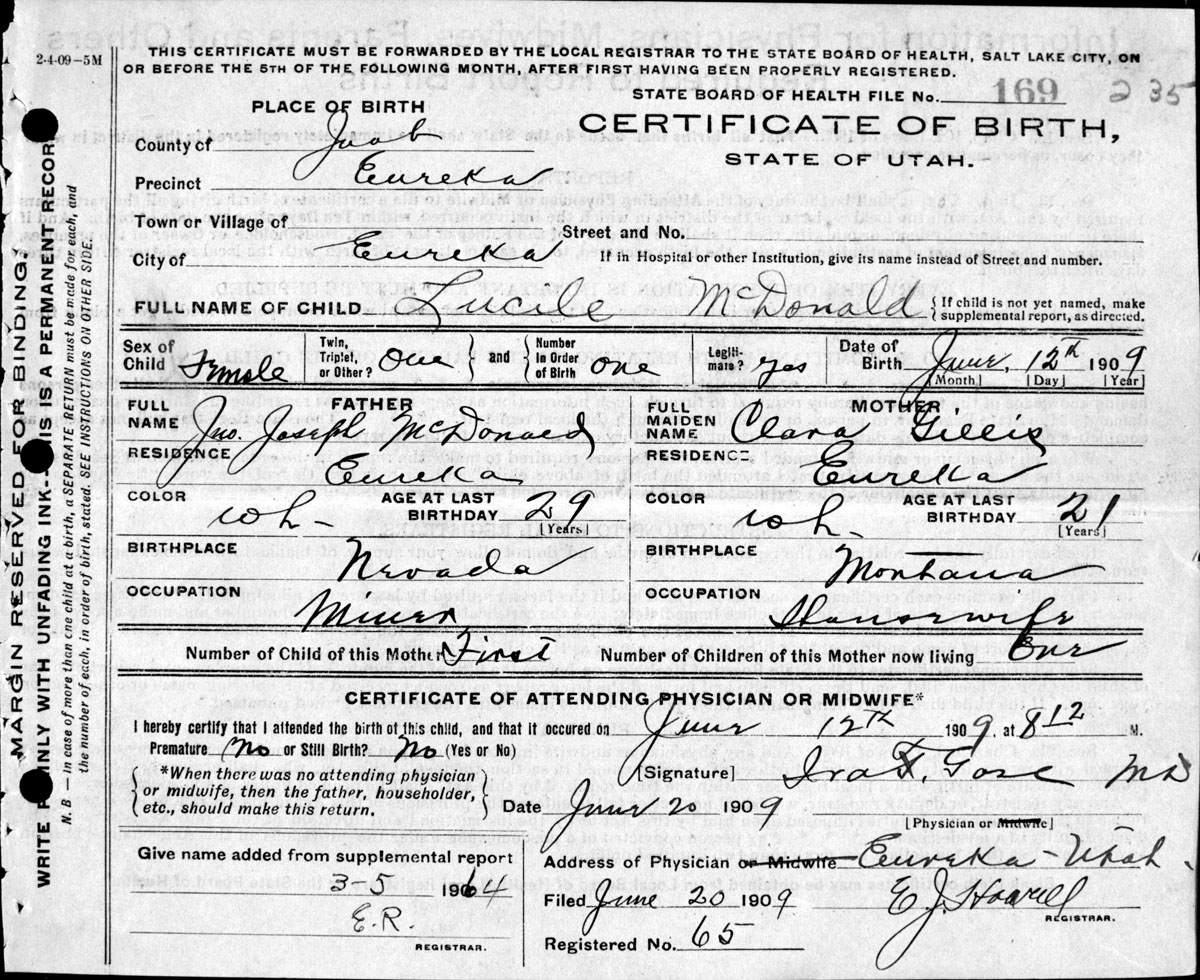 2-4-09-5M
THIS CERTIFICATE MUST BE FORWARDED BY THE LOCAL REGISTRAR TO THE STATE BOARD OF HEALTH, SALT LAKE CITY, ON
OR BEFORE THE 5TH OF THE FOLLOWING MONTH, AFTER FIRST HAVING BEEN PROPERLY REGISTERED.
STATE BOARD OF HEALTH FILE No. 169 235
PLACE OF BIRTH
CERTIFICATE OF BIRTH,
STATE OF UTAH.
County of Juab
Precinct Eureka
Town or Village of
Street and No.
City of Eureka
If in Hospital or other Institution, give its name instead of Street and number.
FULL NAME OF CHILD Lucile McDonald {If child is not yet named, make supplemental report, as directed.
Sex of Child Female Twin, Triplet, or Other? One } and { Number in Order of Birth One Legitimate? yes Date of Birth June, 12th 1909
[Month] [Day] [Year]
FATHER
FULL NAME Jno. Joseph McDonald
RESIDENCE Eureka
COLOR wh- AGE AT LAST BIRTHDAY 29 [Years]
BIRTHPLACE Nevada
OCCUPATION Miner
MOTHER
FULL MAIDEN NAME Clara Gillis
RESIDENCE Eureka
COLOR wh- AGE AT LAST BIRTHDAY 21 [Years]
BIRTHPLACE Montana
OCCUPATION Housewife
Number of Child of this Mother First Number of Children of this Mother now living One
CERTIFICATE OF ATTENDING PHYSICIAN OR MIDWIFE*
I hereby certify that I attended the birth of this child, and that it occured on June 12th 1909, at 8 12 M.
Premature No or Still Birth? No (Yes or No)
[Signature] Ira Gose MD
[Physician or Midwife]
{*When there was no attending physician
or midwife, then the father, householder,
etc., should make this return.}
Date June 20 1909
Give name added from supplemental report
3-5 1964
E.R.
REGISTRAR.
Address of Physician or Midwife Eureka - Utah
Filed June 20 1909 E J Howell
REGISTRAR.
Registered No. 65
MARGIN RESERVED FOR BINDING.
WRITE INLY WITH UNFADING INK--IS IS A PERMANENT RECOR
N. B.—In case of more than one child at a birth, a SEPARATE RETURN must be made for each, and
the number of each, in order of birth, stated. SEE INSTRUCTIONS ON OTHER SIDE.